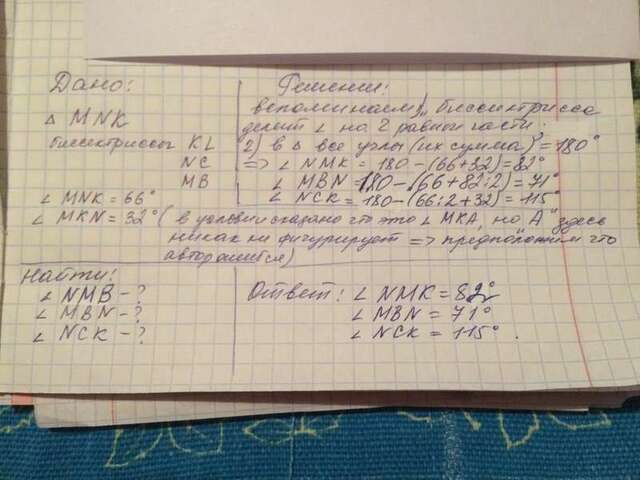 Дано:
△ MNK
биссектриссы KL
NC
MB
∠ MNK = 66°
∠ MKN = 32° (в условии сказано что это ∠ MKA, но "A" здесь
никак не фигурирует => предположим что
автор ошибся)
Решение:
вспоминаем 1) биссектрисса
делит ∠ на 2 равной части.
2) в △ все углы (их сумма) = 180°
=> ∠ NMK = 180 - (66+32) = 82°
∠ MBN = 180 - (66+82:2) = 71°
∠ NCK = 180 - (66:2+32) = 115°
Найти:
∠ NMB - ?
∠ MBN - ?
∠ NCK - ?
Ответ: ∠ NMK = 82°
∠ MBN = 71°
∠ NCK = 115°.